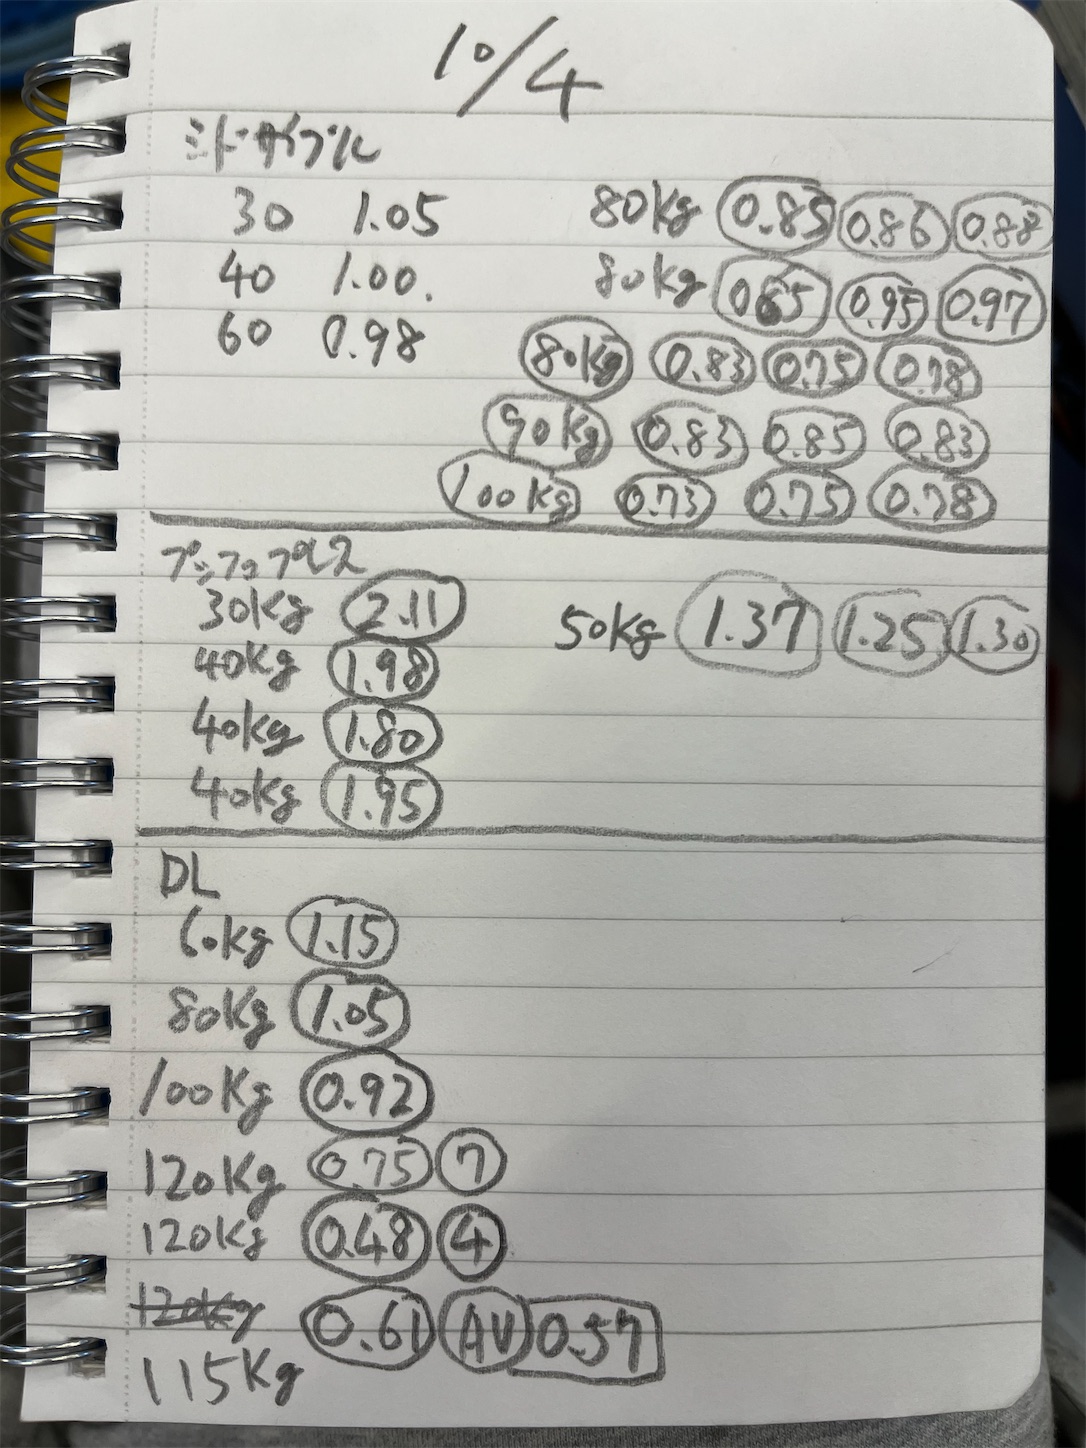 10/4
ミドサイプル
30 1.05
40 1.00.
60 0.98
80kg 0.85 0.86 0.88
80kg 0.95 0.97
80kg 0.83 0.75 0.78
90kg 0.83 0.85 0.83
100kg 0.73 0.75 0.78
プッシュプレス
30kg 2.11
40kg 1.98
40kg 1.80
40kg 1.95
50kg 1.37 1.25 1.30
DL
60kg 1.15
80kg 1.05
100kg 0.92
120kg 0.75 7
120kg 0.48 4
120kg
115kg 0.61 AV 0.57